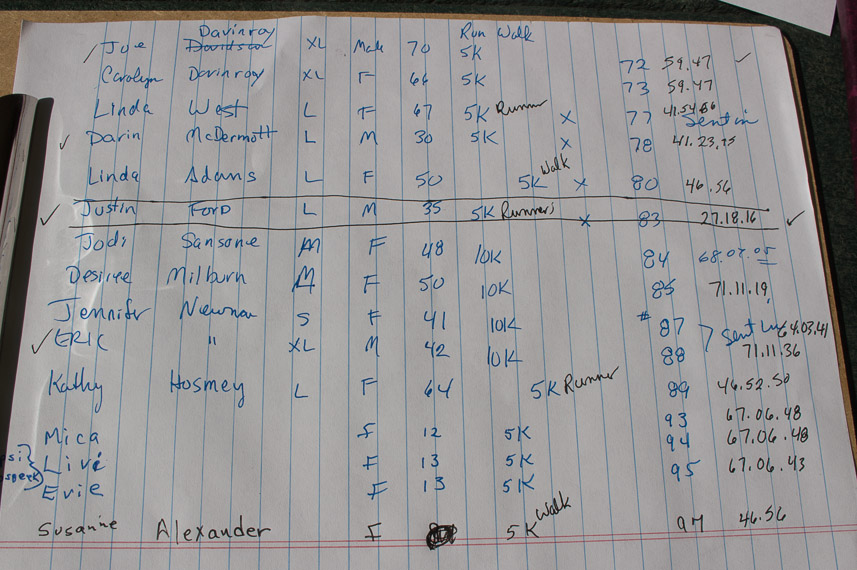 Davinroy Run Walk
✓ Joe Davidson XL Male 70 5K 72 59.47 ✓
Carolyn Davinroy XL F 66 5K 73 59.47
Linda West L F 67 5K Runner x 77 41.54.86
Sent in
✓ Darin McDermott L M 30 5K x 78 41.23.75
Linda Adams L F 50 5K Walk x 80 46.56
✓ Justin Ford L M 35 5K Runners x 83 27.18.16 ✓
Jodi Sansone M F 48 10K 84 68.07.05
Desiree Milburn M F 50 10K 85 71.11.19
Jennifer S F 41 10K # 87 Sent in 64.03.41
✓ ERIC " XL M 42 10K 88 71.11.36
Kathy Hosmey L F 64 5K Runner 89 46.52.50
Mica F 12 5K 93 67.06.48
Live F 13 5K 94 67.06.48
Evie F 13 5K 95 67.06.43
Susanne Alexander F 5K Walk 97 46.56